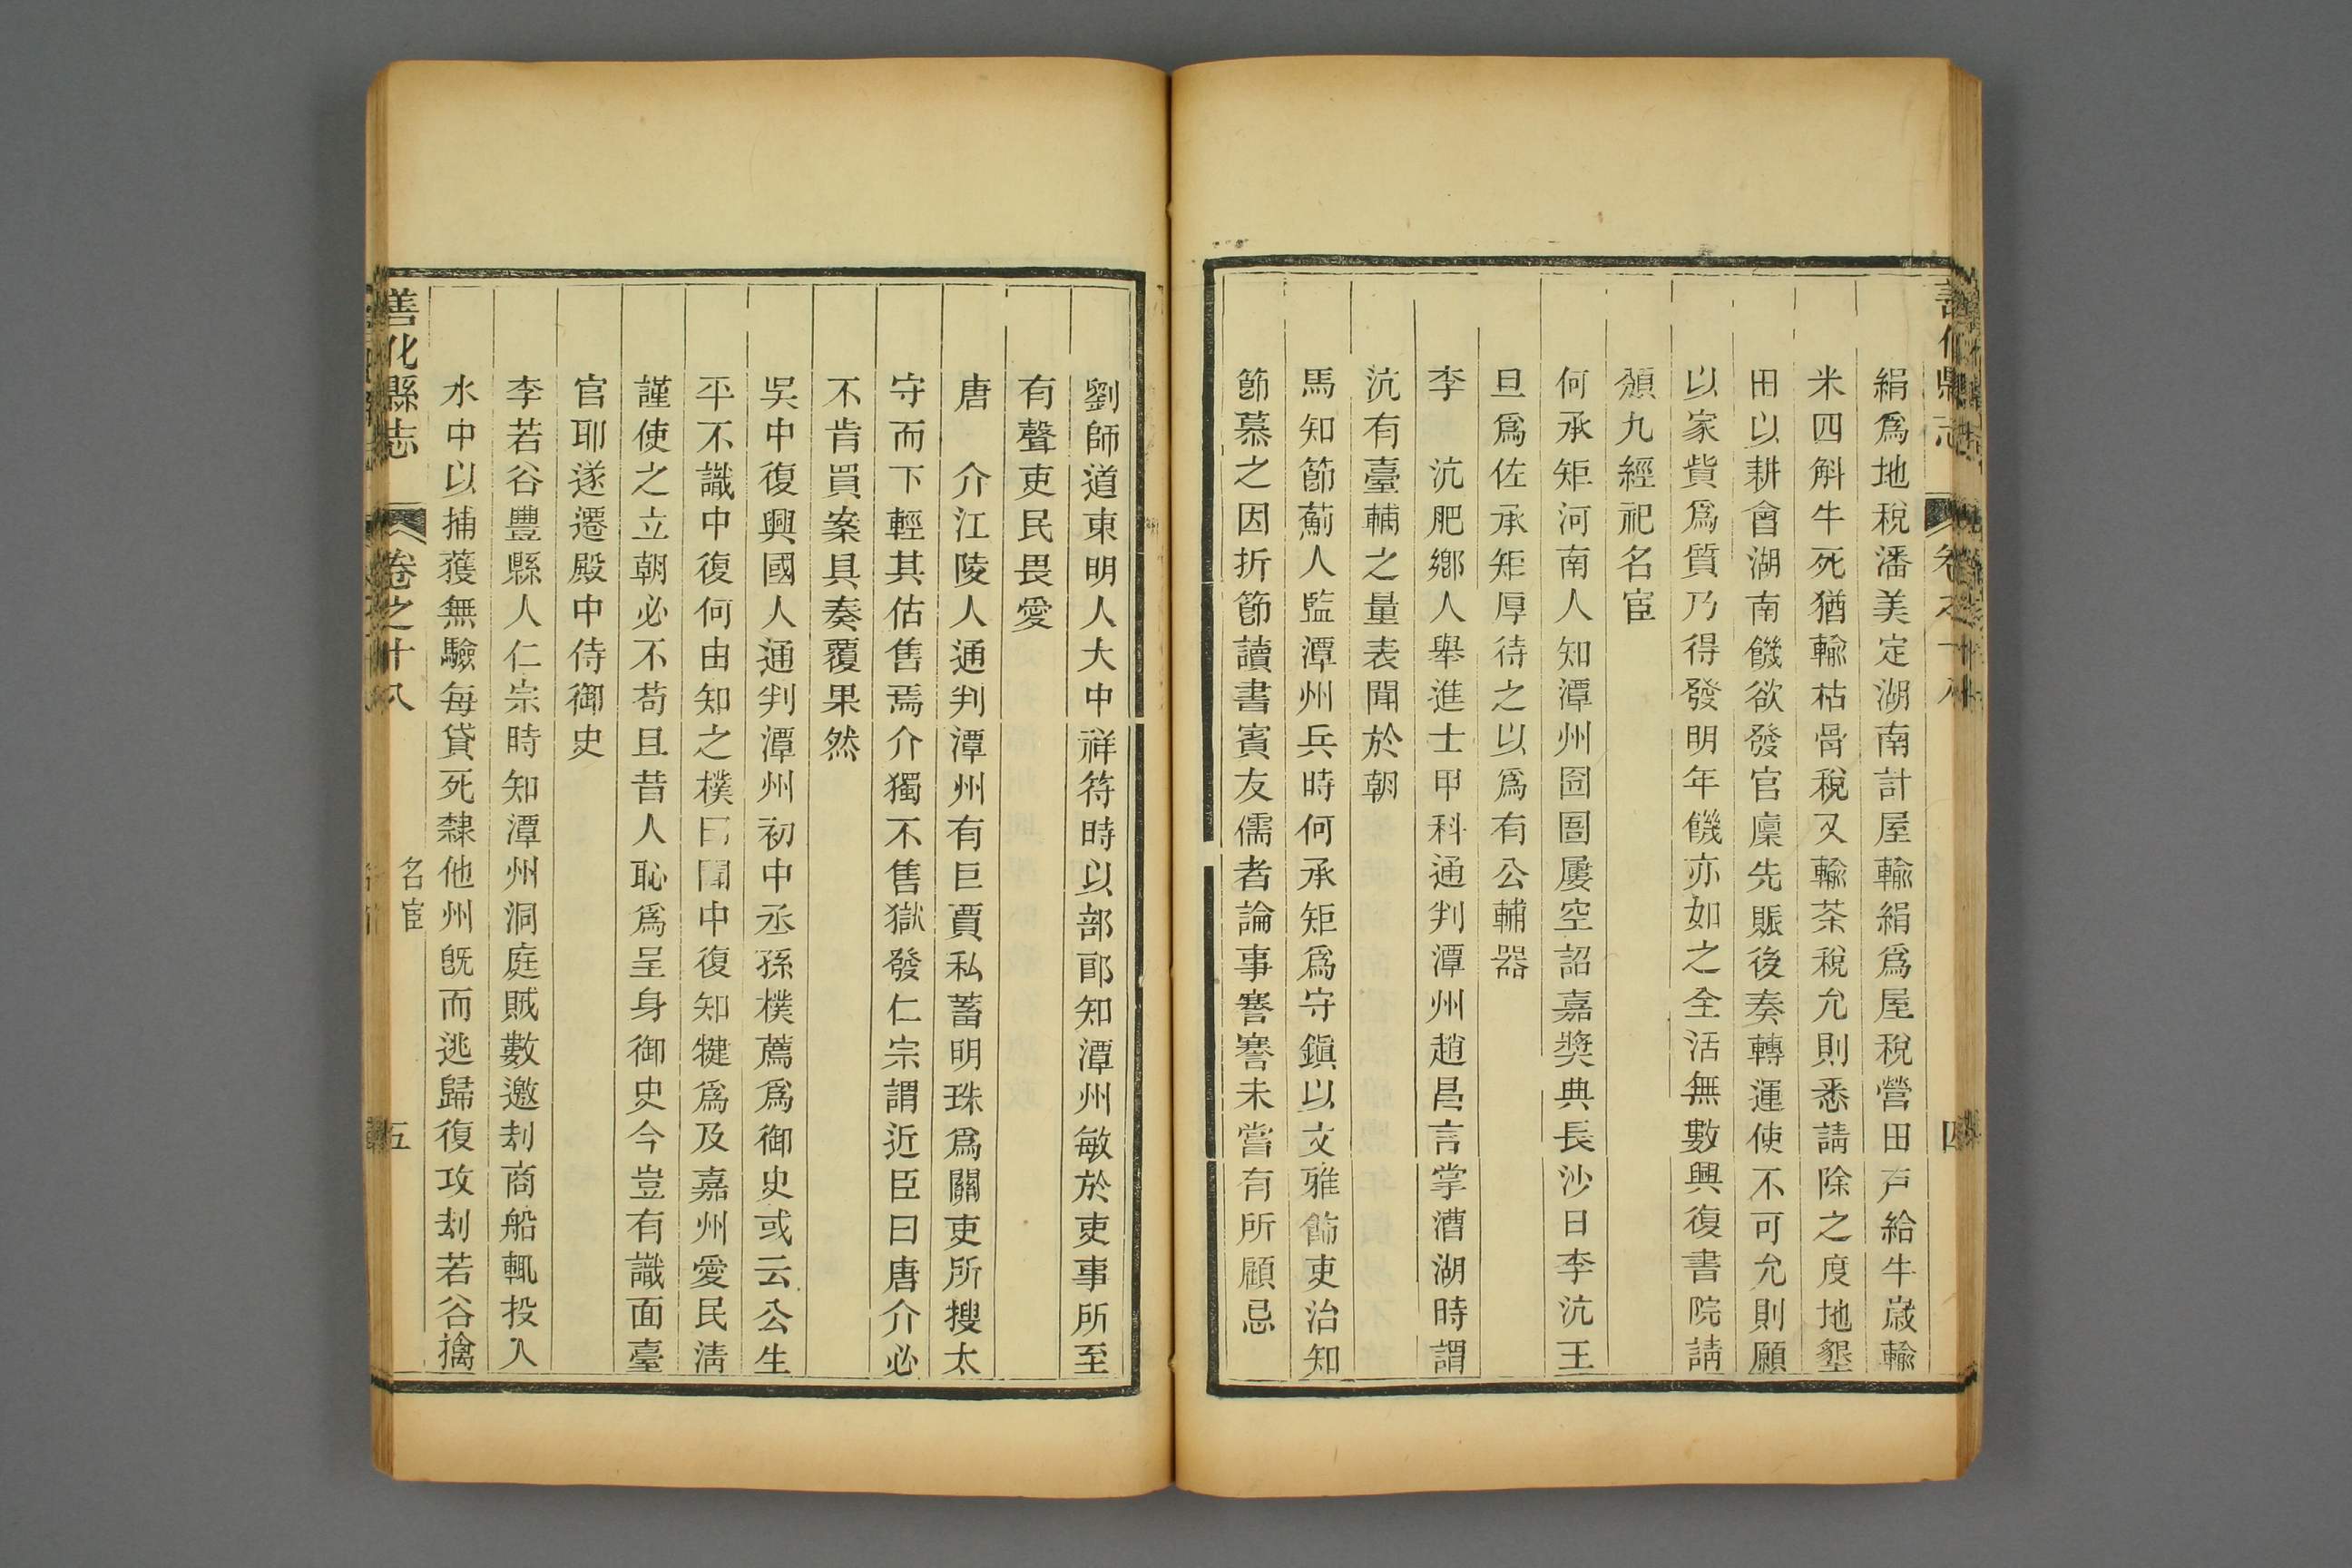 絹爲地稅潘美定湖南計屋輸絹爲屋稅營田戸給牛歲輸
米四斛牛死猶輸枯骨稅又輸茶稅允則悉請除之度地墾
田以耕會湖南饑欲發官廩先賑後奏轉運使不可允則願
以家貲爲質乃得發明年饑亦如之全活無數興復書院請
頒九經祀名宦
何承矩河南人知潭州囹圄屢空詔嘉獎典長沙日李沆王
旦爲佐承矩厚待之以爲有公輔器
李　沆肥鄉人舉進士甲科通判潭州趙昌言掌漕湖時謂
沆有臺輔之量表聞於朝
馬知節薊人監潭州兵時何承矩爲守鎭以文雅飾吏治知
節慕之因折節讀書賓友儒者論事謇謇未嘗有所顧忌
劉師道東明人大中祥符時以部郎知潭州敏於吏事所至
有聲吏民畏愛
唐　介江陵人通判潭州有巨賈私蓄明珠爲關吏所搜太
守而下輕其估售焉介獨不售獄發仁宗謂近臣曰唐介必
不肯買案具奏覆果然
吳中復興國人通判潭州初中丞孫樸薦爲御史或云公生
平不識中復何由知之樸曰聞中復知犍爲及嘉州愛民淸
謹使之立朝必不苟且昔人恥爲呈身御史今豈有識面臺
官耶遂遷殿中侍御史
李若谷豐縣人仁宗時知潭州洞庭賊數邀刦商船輒投入
水中以捕獲無驗每貸死隸他州旣而逃歸復攻刦若谷擒
善化縣志　卷之十八　名宦　五